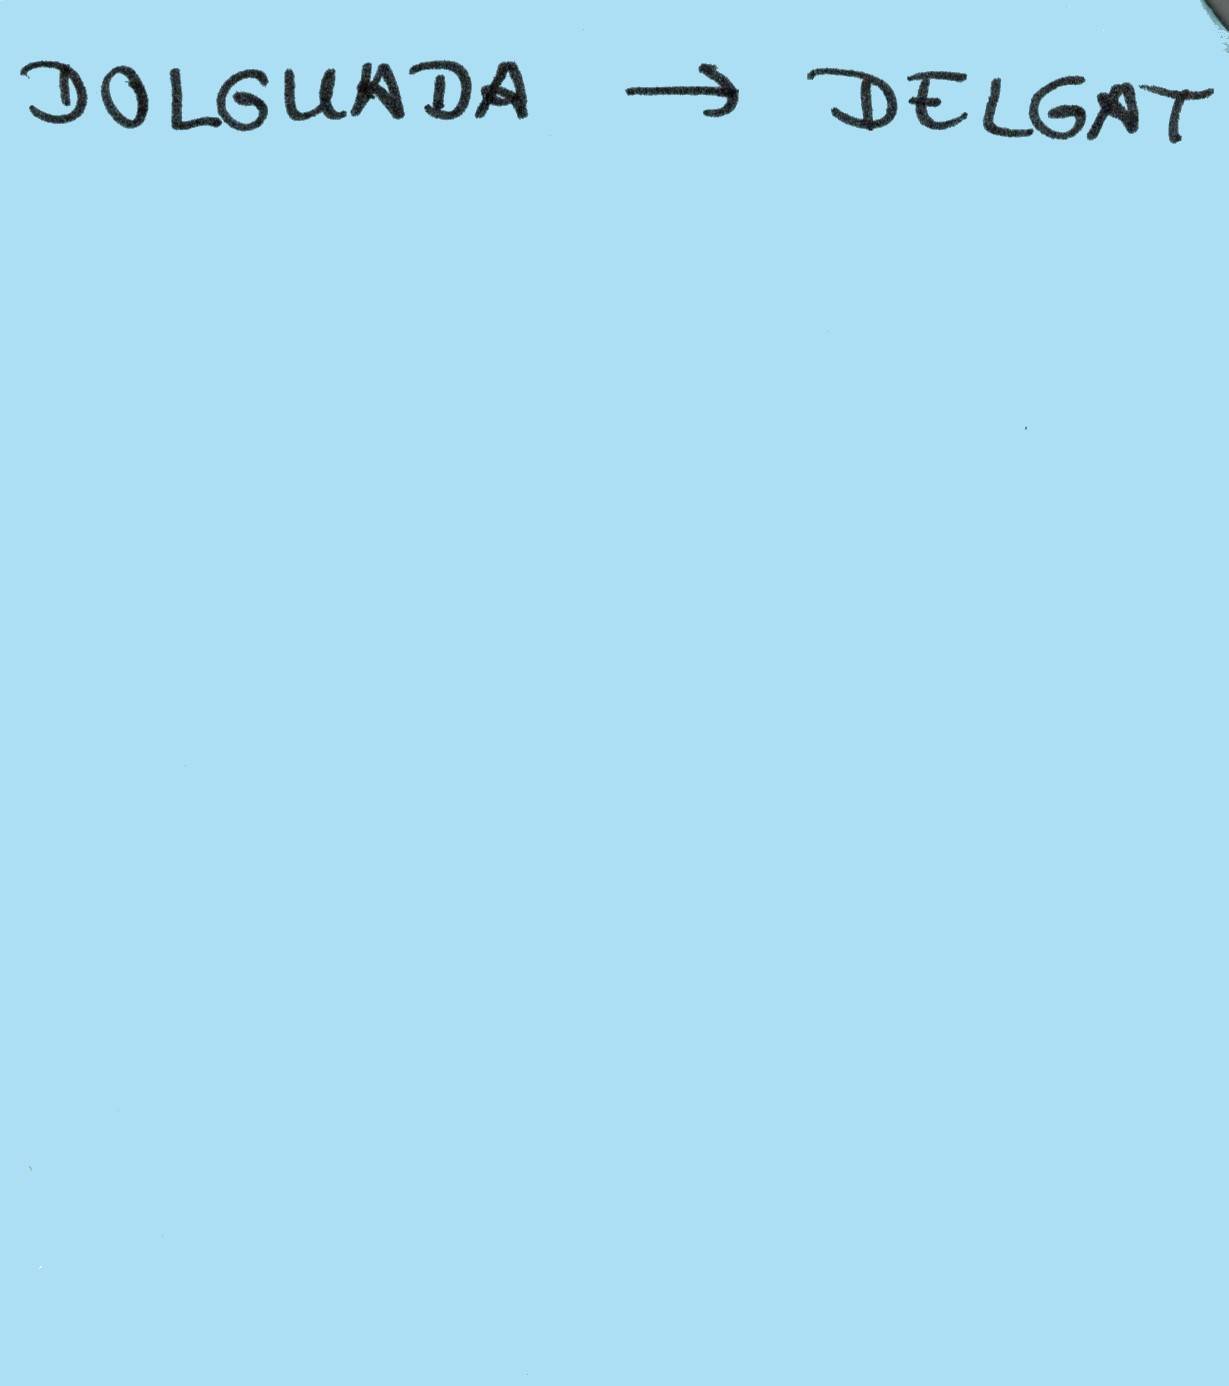 DOLGUADA → DELGAT